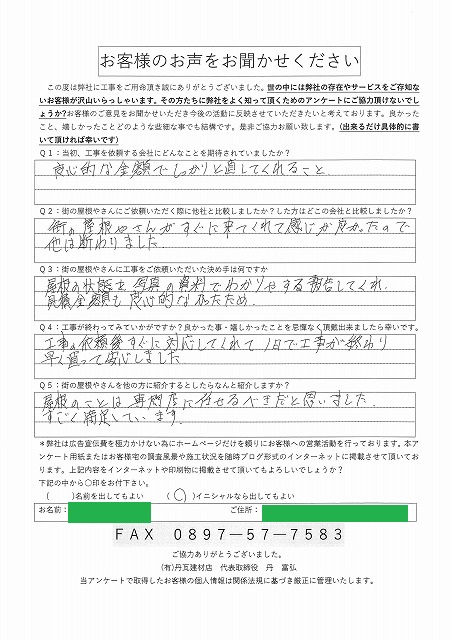 お客様のお声をお聞かせください
この度は弊社に工事をご用命頂き誠にありがとうございました。世の中には弊社の存在やサービスをご存知な
いお客様が沢山いらっしゃいます。その方たちに弊社をよく知って頂くためのアンケートにご協力頂けないでし
ょうか?お客様のご意見をお聞かせいただき今後の活動に反映させていただきたいと考えております。良かった
こと、嬉しかったことどのような些細な事でも結構です。是非ご協力お願い致します。(出来るだけ具体的に書
いて頂ければ幸いです)
Q1:当初、工事を依頼する会社にどんなことを期待されていましたか?
良心的な金額でしっかりと直してくれること.
Q2:街の屋根やさんにご依頼いただく際に他社と比較しましたか?した方はどこの会社と比較しましたか?
街の屋根やさんがすぐに来てくれて感じが良かったので
他は断わりました
Q3:街の屋根やさんに工事をご依頼いただいた決め手は何ですか
屋根の状態を写真の資料でわかりやすく報告してくれ.
見積金額も良心的なかったため.
Q4:工事が終わってみていかがですか?良かった事・嬉しかったことを忌憚なく頂戴出来ましたら幸いです。
工事の依頼後すぐに対応してくれて1日で工事が終わり
早く直って安心しました
Q5:街の屋根やさんを他の方に紹介するとしたらなんと紹介しますか?
屋根のことは専門店に任せるべきだと思いました.
すごく満足しています.
*弊社は広告宣伝費を極力かけない為にホームページだけを頼りにお客様への営業活動を行っております。本ア
ンケート用紙またはお客様宅の調査風景や施工状況を随時ブログ形式のインターネットに掲載させて頂いてお
ります。上記内容をインターネットや印刷物に掲載させて頂いてもよろしいでしょうか?
下記の中から〇印をお付下さい。
( )名前を出してもよい (〇)イニシャルなら出してもよい
お名前: ご住所:
FAX 0897-57-7583
ご協力ありがとうございました。
(有)丹瓦建材店 代表取締役 丹 富弘
当アンケートで取得したお客様の個人情報は関係法規に基づき厳正に管理いたします。